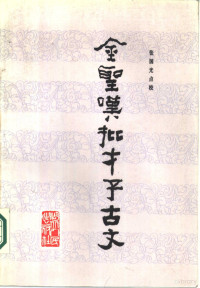 张国光点校
金聖嘆批才子古文